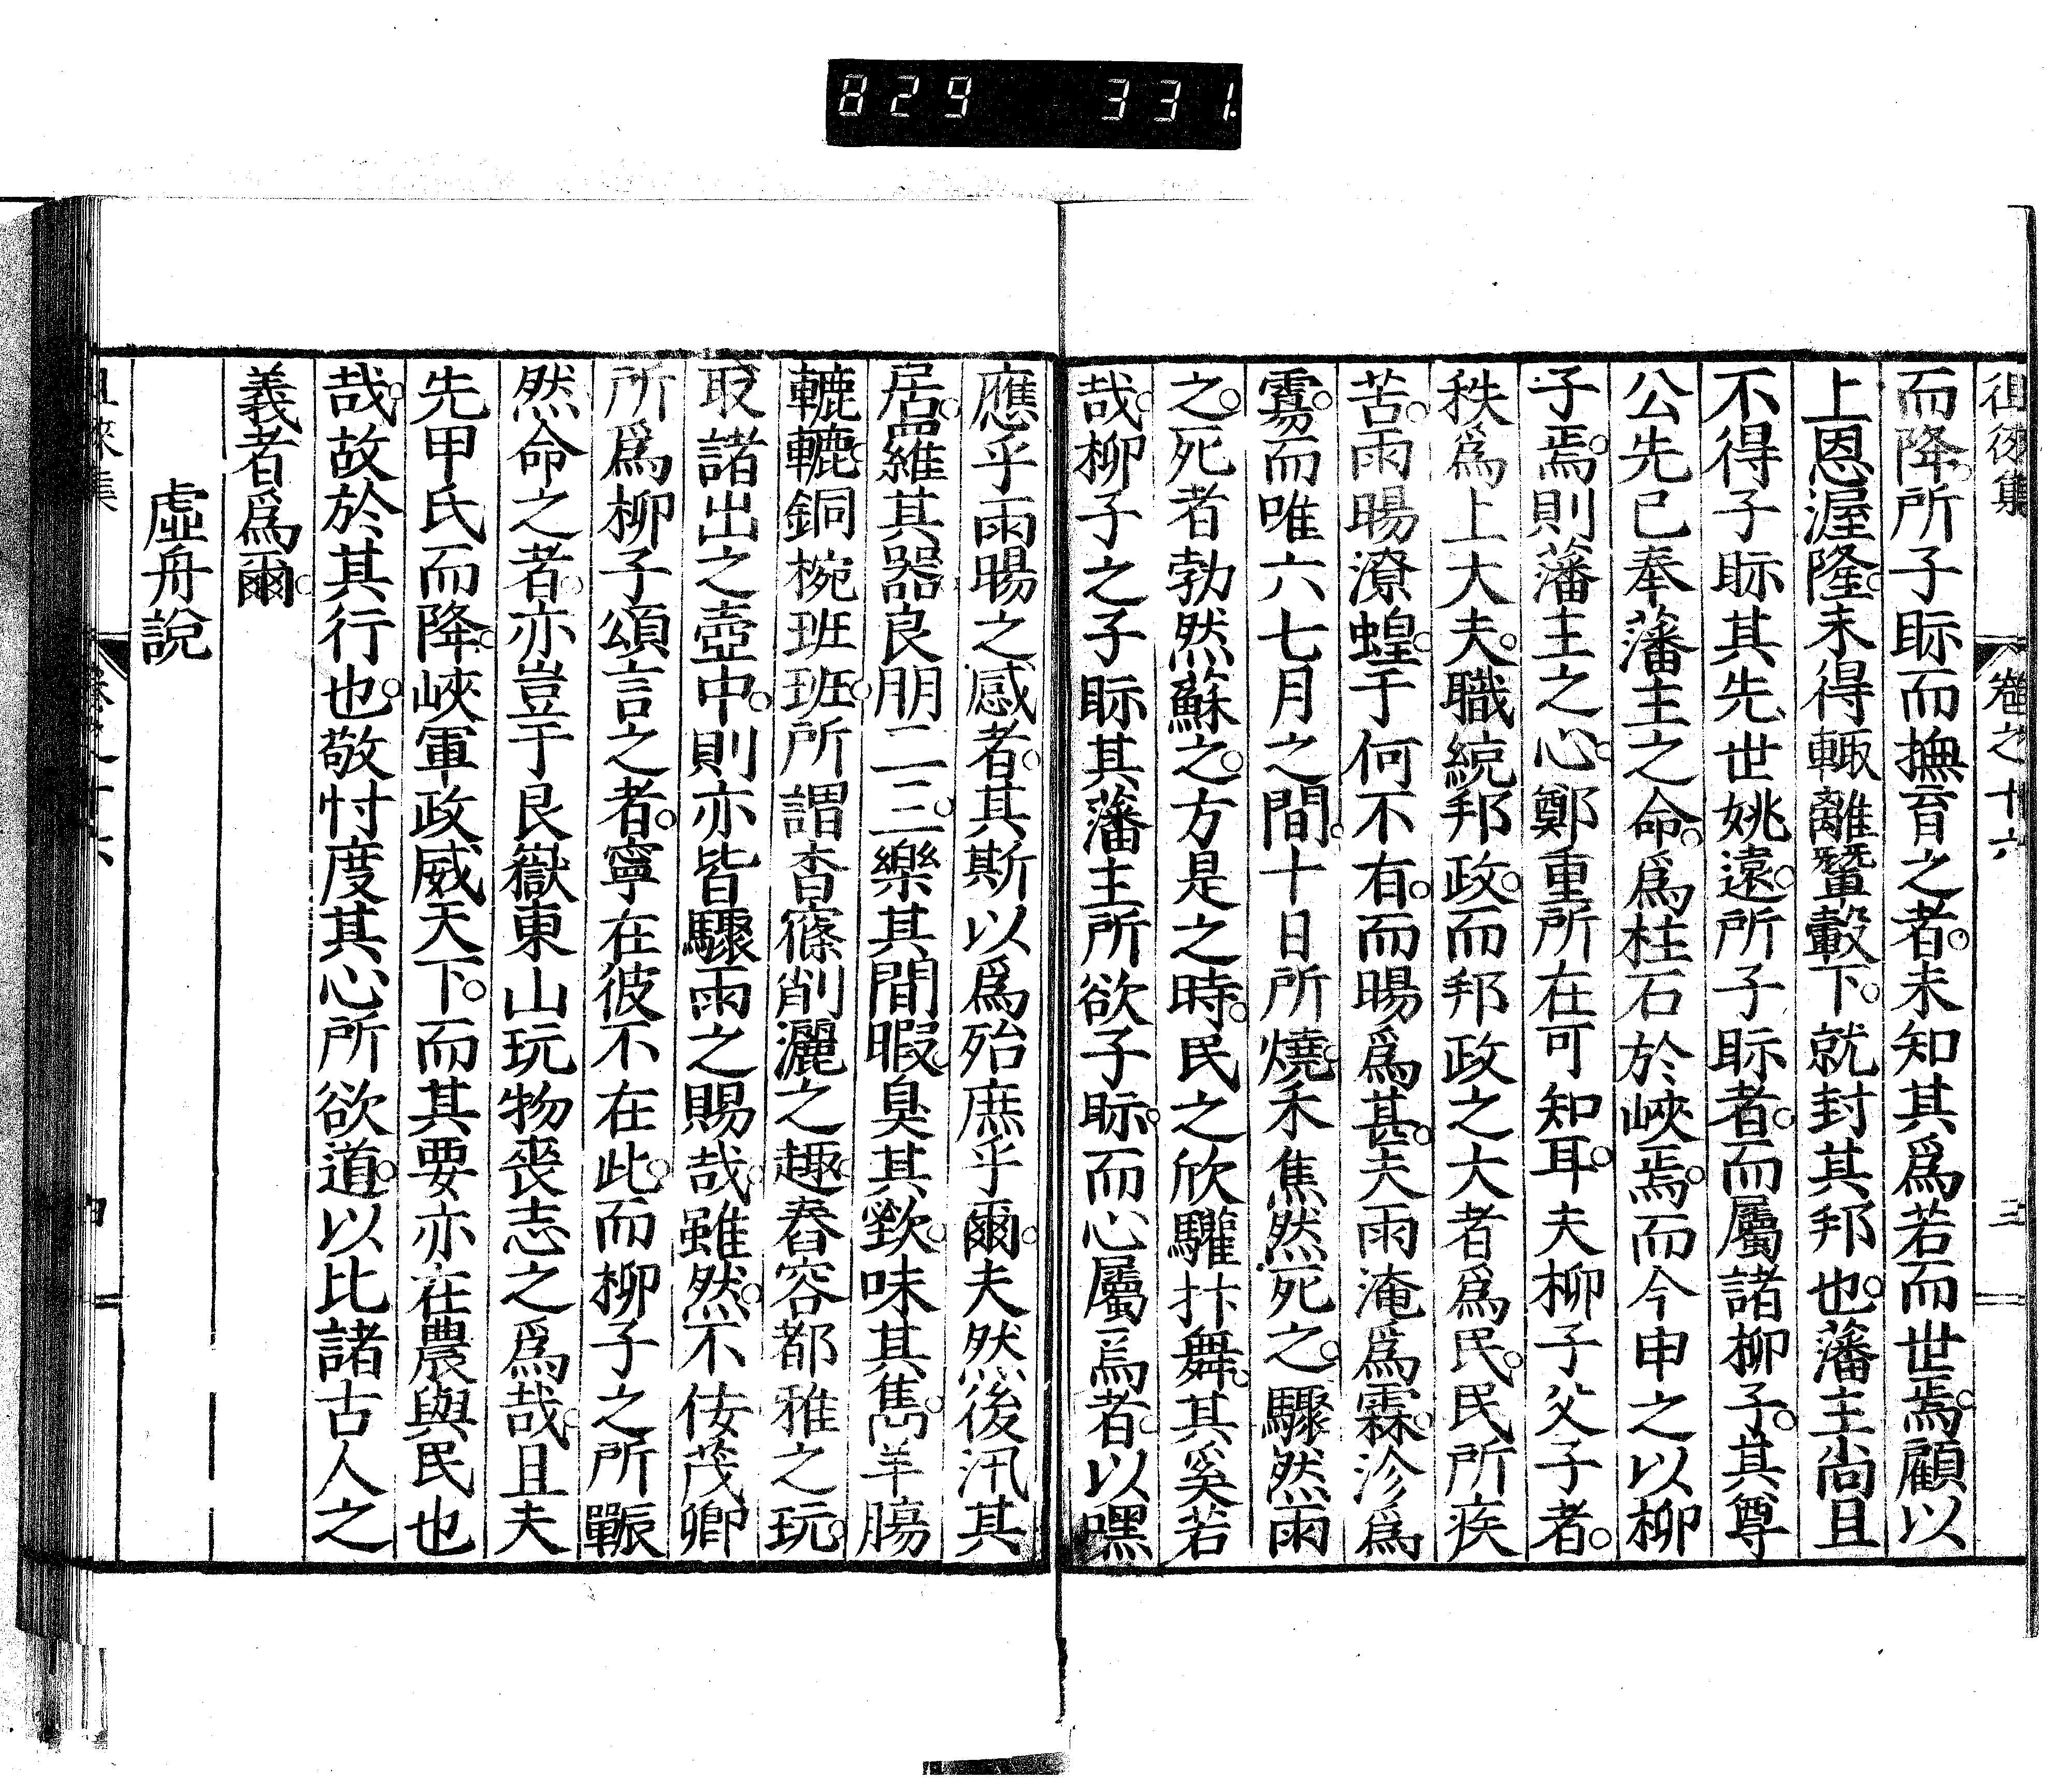 829 331.
徂徠集 卷之十六 三
而降。所子眎而撫育之者。未知其爲若而世焉。顧以
上恩渥隆。未得輙離輦轂下。就封其邦也。藩主尚且
不得子眎其先世姚遠。所子眎者。而屬諸柳子。其尊
公先已奉藩主之命。爲柱石於峽焉。而今申之以柳
子焉。則藩主之心。鄭重所在可知耳。夫柳子父子者。
秩爲上大夫。職綂邦政。而邦政之大者爲民。民所疾
苦。雨暘潦蝗。于何不有。而暘爲甚。夫雨淹爲霖。沴爲
霧。而唯六七月之間。十日所燒。禾焦然死之。驟然雨
之。死者勃然蘇之。方是之時。民之欣驩抃舞。其奚若
哉。柳子之子眎其藩主所欲子眎。而心屬焉者。以嘿
應乎雨暘之感者。其斯以爲殆庶乎爾。夫然後汛其
居。羅其器。良朋二三。樂其間暇。臭其欵。味其雋。羊腸
轆轆。銅椀班班。所謂杳篠削灑之趣。舂容都雅之玩。
取諸出之壺中。則亦皆驟雨之賜哉。雖然。不佞茂卿
所爲柳子頌言之者。寧在彼不在此。而柳子之所𩋾
然命之者。亦豈于艮嶽東山玩物喪志之爲哉。且夫
先甲氏而降。峽軍政威天下。而其要亦在農與民也
哉。故於其行也。敬忖度其心所欲道。以比諸古人之
義者爲爾。
虛舟說